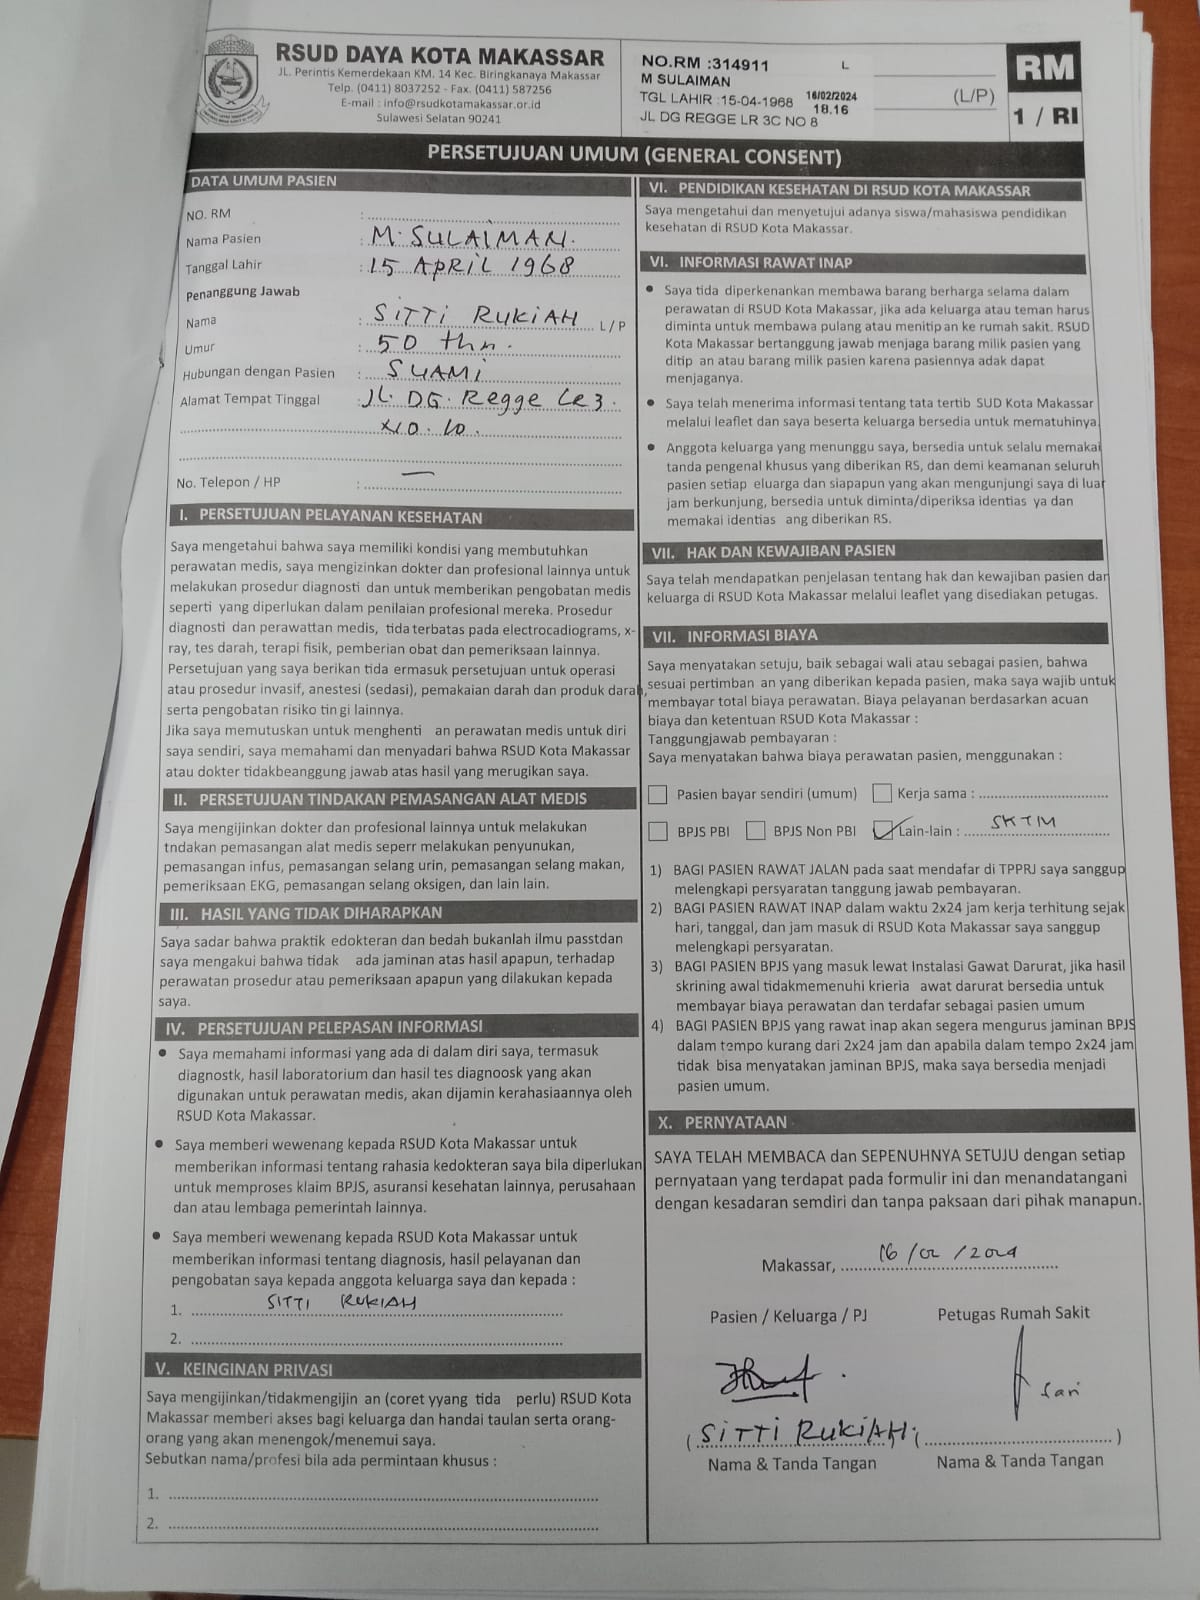 RSUD DAYA KOTA MAKASSAR
JL. Perintis Kemerdekaan KM. 14 Kec. Biringkanaya Makassar
Telp. (0411) 8037252 - Fax. (0411) 587256
E-mail : info@rsudkotamakassar.or.id
Sulawesi Selatan 90241
NO.RM :314911 L
M SULAIMAN
TGL LAHIR :15-04-1968 16/02/2024
18.16
JL DG REGGE LR 3C NO 8
(L/P)
RM
1 / RI
PERSETUJUAN UMUM (GENERAL CONSENT)
DATA UMUM PASIEN
NO. RM :
Nama Pasien : M. SULAIMAN.
Tanggal Lahir : 15 APRIL 1968
Penanggung Jawab
Nama : SITTI RUKIAH L/P
Umur : 50 thn.
Hubungan dengan Pasien : SUAMI
Alamat Tempat Tinggal : JL. DG. Regge Lr 3.
NO. 10.
No. Telepon / HP : —
I. PERSETUJUAN PELAYANAN KESEHATAN
Saya mengetahui bahwa saya memiliki kondisi yang membutuhkan
perawatan medis, saya mengizinkan dokter dan profesional lainnya untuk
melakukan prosedur diagnosti dan untuk memberikan pengobatan medis
seperti yang diperlukan dalam penilaian profesional mereka. Prosedur
diagnosti dan perawattan medis, tida terbatas pada electrocadiograms, x-
ray, tes darah, terapi fisik, pemberian obat dan pemeriksaan lainnya.
Persetujuan yang saya berikan tida ermasuk persetujuan untuk operasi
atau prosedur invasif, anestesi (sedasi), pemakaian darah dan produk darah,
serta pengobatan risiko tin gi lainnya.
Jika saya memutuskan untuk menghenti an perawatan medis untuk diri
saya sendiri, saya memahami dan menyadari bahwa RSUD Kota Makassar
atau dokter tidakbeanggung jawab atas hasil yang merugikan saya.
II. PERSETUJUAN TINDAKAN PEMASANGAN ALAT MEDIS
Saya mengijinkan dokter dan profesional lainnya untuk melakukan
tndakan pemasangan alat medis seperr melakukan penyunukan,
pemasangan infus, pemasangan selang urin, pemasangan selang makan,
pemeriksaan EKG, pemasangan selang oksigen, dan lain lain.
III. HASIL YANG TIDAK DIHARAPKAN
Saya sadar bahwa praktik edokteran dan bedah bukanlah ilmu passtdan
saya mengakui bahwa tidak ada jaminan atas hasil apapun, terhadap
perawatan prosedur atau pemeriksaan apapun yang dilakukan kepada
saya.
IV. PERSETUJUAN PELEPASAN INFORMASI
• Saya memahami informasi yang ada di dalam diri saya, termasuk
diagnostk, hasil laboratorium dan hasil tes diagnoosk yang akan
digunakan untuk perawatan medis, akan dijamin kerahasiaannya oleh
RSUD Kota Makassar.
• Saya memberi wewenang kepada RSUD Kota Makassar untuk
memberikan informasi tentang rahasia kedokteran saya bila diperlukan
untuk memproses klaim BPJS, asuransi kesehatan lainnya, perusahaan
dan atau lembaga pemerintah lainnya.
• Saya memberi wewenang kepada RSUD Kota Makassar untuk
memberikan informasi tentang diagnosis, hasil pelayanan dan
pengobatan saya kepada anggota keluarga saya dan kepada :
1. SITTI RUKIAH
2.
V. KEINGINAN PRIVASI
Saya mengijinkan/tidakmengijin an (coret yyang tida perlu) RSUD Kota
Makassar memberi akses bagi keluarga dan handai taulan serta orang-
orang yang akan menengok/menemui saya.
Sebutkan nama/profesi bila ada permintaan khusus :
1.
2.
VI. PENDIDIKAN KESEHATAN DI RSUD KOTA MAKASSAR
Saya mengetahui dan menyetujui adanya siswa/mahasiswa pendidikan
kesehatan di RSUD Kota Makassar.
VI. INFORMASI RAWAT INAP
• Saya tida diperkenankan membawa barang berharga selama dalam
perawatan di RSUD Kota Makassar, jika ada keluarga atau teman harus
diminta untuk membawa pulang atau menitip an ke rumah sakit. RSUD
Kota Makassar bertanggung jawab menjaga barang milik pasien yang
ditip an atau barang milik pasien karena pasiennya adak dapat
menjaganya.
• Saya telah menerima informasi tentang tata tertib SUD Kota Makassar
melalui leaflet dan saya beserta keluarga bersedia untuk mematuhinya
• Anggota keluarga yang menunggu saya, bersedia untuk selalu memakai
tanda pengenal khusus yang diberikan RS, dan demi keamanan seluruh
pasien setiap eluarga dan siapapun yang akan mengunjungi saya di luar
jam berkunjung, bersedia untuk diminta/diperiksa identias ya dan
memakai identias ang diberikan RS.
VII. HAK DAN KEWAJIBAN PASIEN
Saya telah mendapatkan penjelasan tentang hak dan kewajiban pasien dan
keluarga di RSUD Kota Makassar melalui leaflet yang disediakan petugas.
VII. INFORMASI BIAYA
Saya menyatakan setuju, baik sebagai wali atau sebagai pasien, bahwa
sesuai pertimban an yang diberikan kepada pasien, maka saya wajib untuk
membayar total biaya perawatan. Biaya pelayanan berdasarkan acuan
biaya dan ketentuan RSUD Kota Makassar :
Tanggungjawab pembayaran :
Saya menyatakan bahwa biaya perawatan pasien, menggunakan :
Pasien bayar sendiri (umum) Kerja sama :
BPJS PBI BPJS Non PBI Lain-lain : SKTM
1) BAGI PASIEN RAWAT JALAN pada saat mendafar di TPPRJ saya sanggup
melengkapi persyaratan tanggung jawab pembayaran.
2) BAGI PASIEN RAWAT INAP dalam waktu 2x24 jam kerja terhitung sejak
hari, tanggal, dan jam masuk di RSUD Kota Makassar saya sanggup
melengkapi persyaratan.
3) BAGI PASIEN BPJS yang masuk lewat Instalasi Gawat Darurat, jika hasil
skrining awal tidakmemenuhi krieria awat darurat bersedia untuk
membayar biaya perawatan dan terdafar sebagai pasien umum
4) BAGI PASIEN BPJS yang rawat inap akan segera mengurus jaminan BPJS
dalam tempo kurang dari 2x24 jam dan apabila dalam tempo 2x24 jam
tidak bisa menyatakan jaminan BPJS, maka saya bersedia menjadi
pasien umum.
X. PERNYATAAN
SAYA TELAH MEMBACA dan SEPENUHNYA SETUJU dengan setiap
pernyataan yang terdapat pada formulir ini dan menandatangani
dengan kesadaran semdiri dan tanpa paksaan dari pihak manapun.
Makassar, 16/02/2024
Pasien / Keluarga / PJ Petugas Rumah Sakit
Sari
(SITTI RUKIAH) ( )
Nama & Tanda Tangan Nama & Tanda Tangan